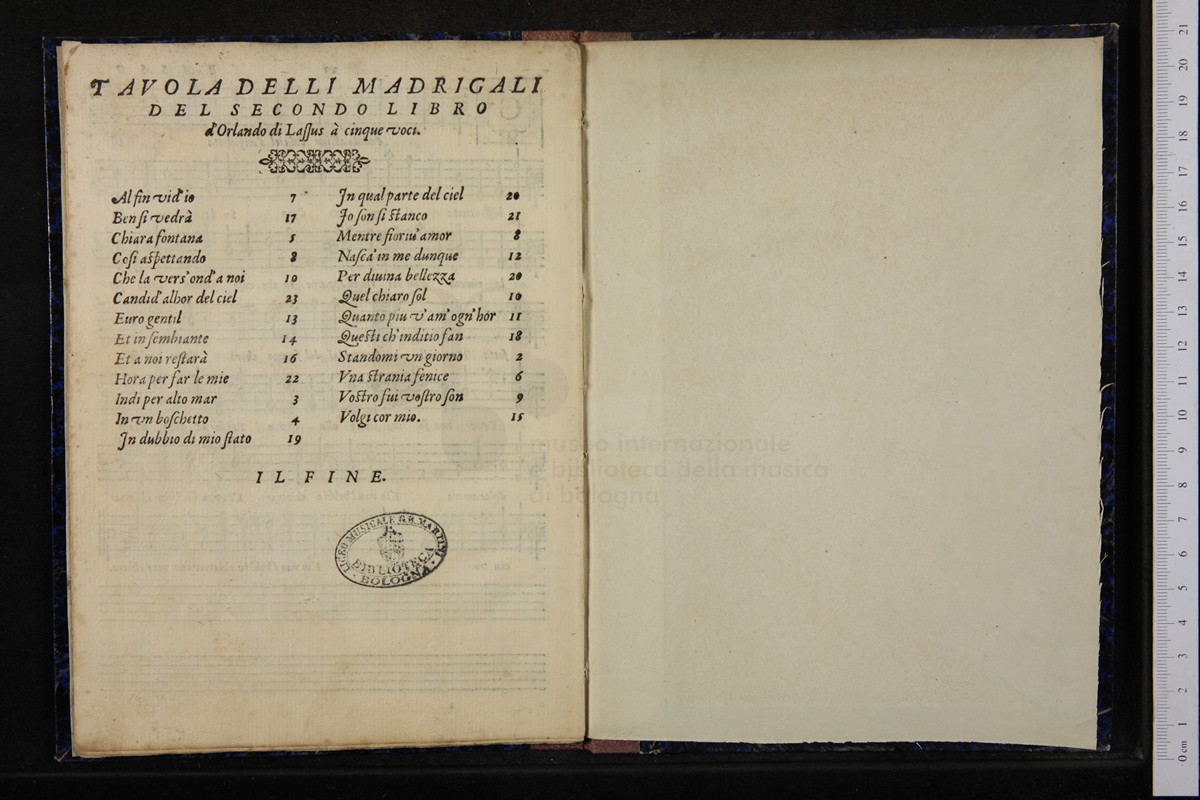 TAVOLA DELLI MADRIGALI
DEL SECONDO LIBRO
d'Orlando di Lassus à cinque voci.
Al fin vid'io 7
Ben si vedrà 17
Chiara fontana 5
Cosi aspettando 8
Che la vers'ond'a noi 10
Candid'alhor del ciel 23
Euro gentil 13
Et in sembiante 14
Et a noi restarà 16
Hora per far le mie 22
Indi per alto mar 3
In vn boschetto 4
In dubbio di mio stato 19
In qual parte del ciel 20
Io son si stanco 21
Mentre fioriu'amor 8
Nasca'in me dunque 12
Per diuina bellezza 20
Quel chiaro sol 10
Quanto piu v'am'ogn'hor 11
Questi ch'inditio fan 18
Standomi vn giorno 2
Vna strania fenice 6
Vostro fui vostro son 9
Volgi cor mio. 15
IL FINE.
LICEO MUSICALE G.B. MARTINI
BIBLIOTECA
BOLOGNA
museo internazionale
e biblioteca della musica
di bologna
0 cm 1 2 3 4 5 6 7 8 9 10 11 12 13 14 15 16 17 18 19 20 21